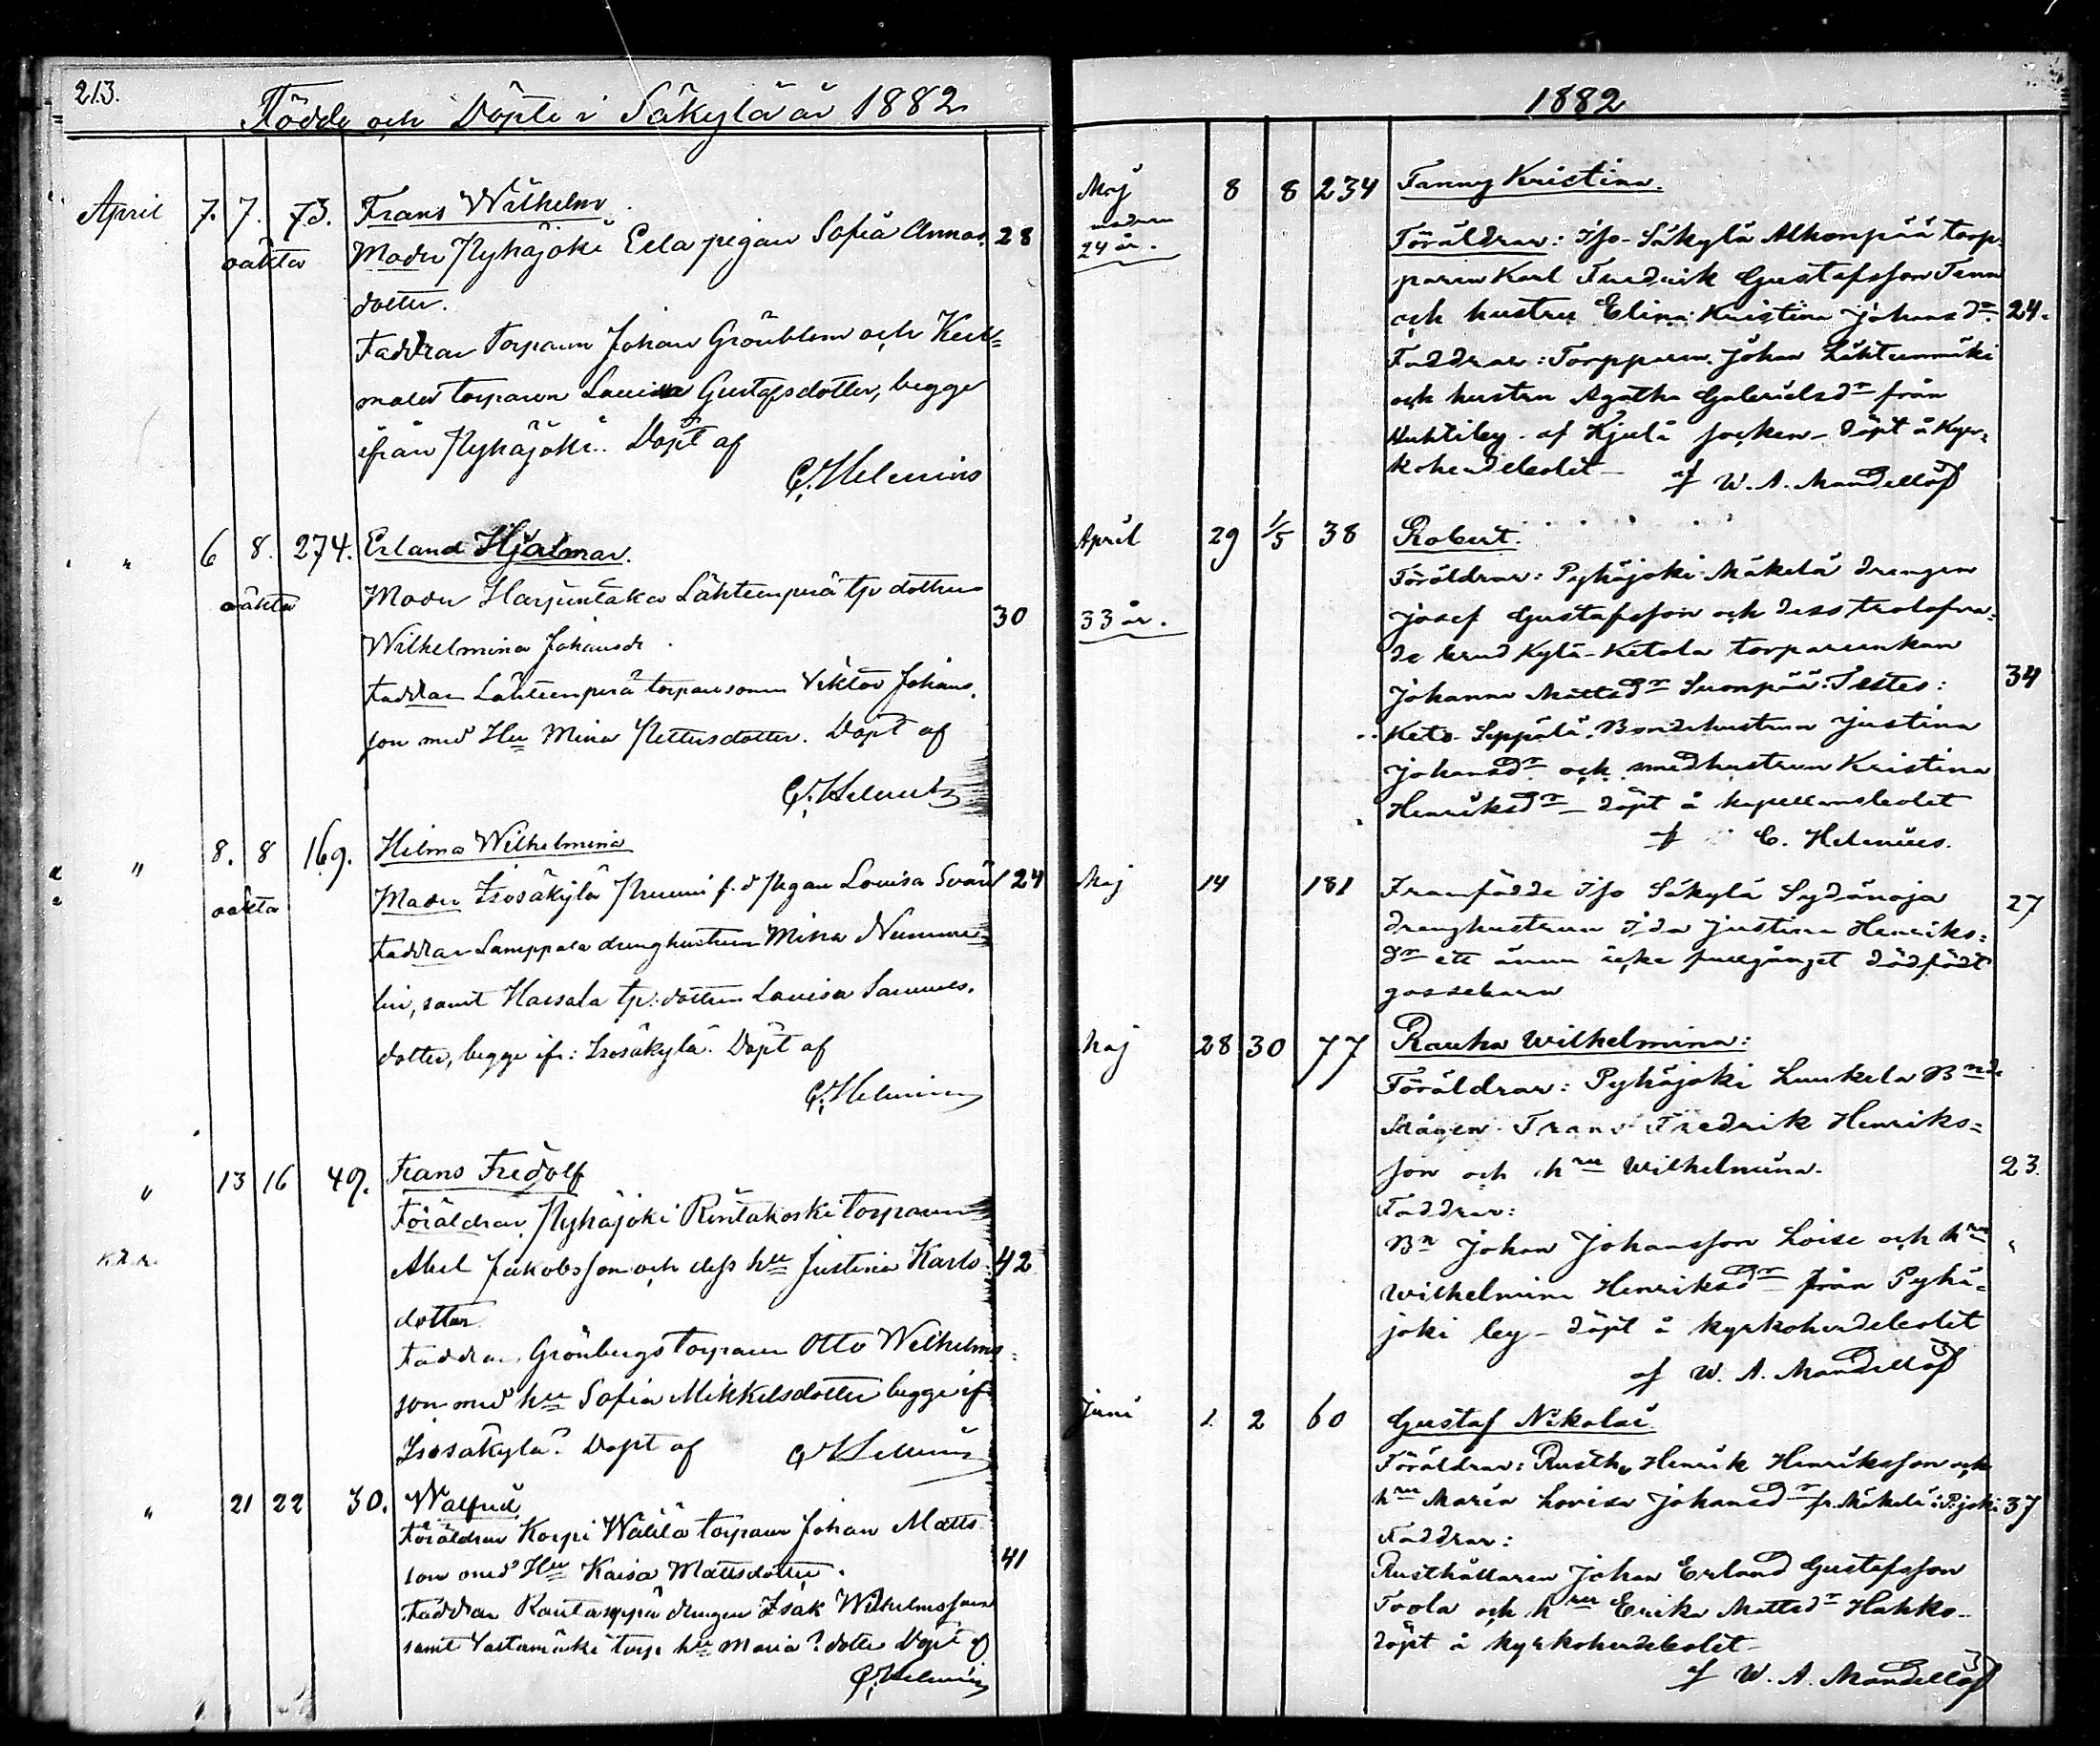 213.
Födde och Döpte i Säkylä år 1882
April 7. 7. 73. Frans Wilhelm
oäkta Moder Pyhäjoki Eela pigan Sofia Annas 28
dotter.
Faddrar Torparen Johan Grönblom och
torparen Lovisa Gustafsdotter, begge
ifrån Pyhäjoki. Döpt af
C. Helenius
" 6 8. 274. Erland Hjalmar.
oäkta Moder Harjuntaka Lähteenperä tp dottren 30
Wilhelmina Johansdr
Faddrar Lähteenperä torparesonen Viktor Johans-
son med Hu Mina Pettersdotter. Döpt af
C. Helenius
" 8. 8 169. Hilma Wilhelmina
oäkta Moder Isosäkylä f.d Pigan Lovisa Svärd 24
Faddrar Lamppala drenghustrun Mina Numme-
lin, samt Kassala tp: dottren Lovisa Samuels-
dotter, begge ifr: Isosäkylä. Döpt af
C. Helenius
" 13 16 49. Frans Fredolf
Föräldrar, Pyhäjoki Rintakoski torparen
Abel Jakobsson och dess hu Justina Karls- 42
dotter
Faddrar, Grönbergs torparen Otto Wilhelms-
son med hu Sofia Mikkelsdotter begge ifr
Isosäkylä. Döpt af C Helenius
" 21 22 30. Walfrid
Föräldrar Korpi Wälilä torparen Johan Matts
son med Hu Kaisa Mattsdotter. 41
Faddrar Rautaseppä drengen Isak Wilhelmsson
samt torp hu Maria ? dotter Döpt af
C. Helenius
1882
Maj 8 8 234 Fanny Kristina.
modren
24 år. Föräldrar: Iso-Säkylä Alhonpää torp-
paren Karl Fredrik Gustafsson Tenn
och hustru Elina Kristina Johansdr. 24.
Faddrar: Torpparen Johan Lähteenmäki
och hustru Agatha Gabrielsdr från
Huhtiby af Kjulå socken - döpt å Kyr-
koherdebolet af W. A. Mandellöf
April 29 1/5 38 Robert.
Föräldrar: Pyhäjoki Mäkelä drengen
33 år. Josef Gustafsson och dess trolofva-
de brud Kylä-Ketola torpareenkan
Johanna Mattsdr Suonpää. Testes: 34
Keto-Seppälä Bondehustrun Justina
Johansdr och smedhustrun Kristina
Henriksdr - döpt å kapellansbolet
af C. Helenius.
Maj 14 181 Framfödde Iso Säkylä Sydänoja 27
drenghustrun Ida Justina Henriks-
dr ett ännu icke fullgånget dödfödt
gossebarn
Maj 28 30 77 Rauha Wilhelmina:
Föräldrar: Pyhäjoki Luukela Bnde
Mågen Frans Fredrik Henriks-
son och hru Wilhelmina. 23.
Faddrar:
Bn Johan Johansson Loise och hru
Wilhelmina Henriksdr från Pyhä-
joki by - döpt å kyrkoherdebolet
af W. A. Mandellöf
Juni 1 2 60 Gustaf Nikolai
Föräldrar: Rusth. Henrik Henriksson och
hru Maria Lovisa Johansdr fr. Mäkelä i P:joki 37
Faddrar:
Rusthållaren Johan Erland Gustafsson
Toola och hru Erika Mattsdr Hakko-
döpt å kyrkoherdebolet
af W. A. Mandellöf